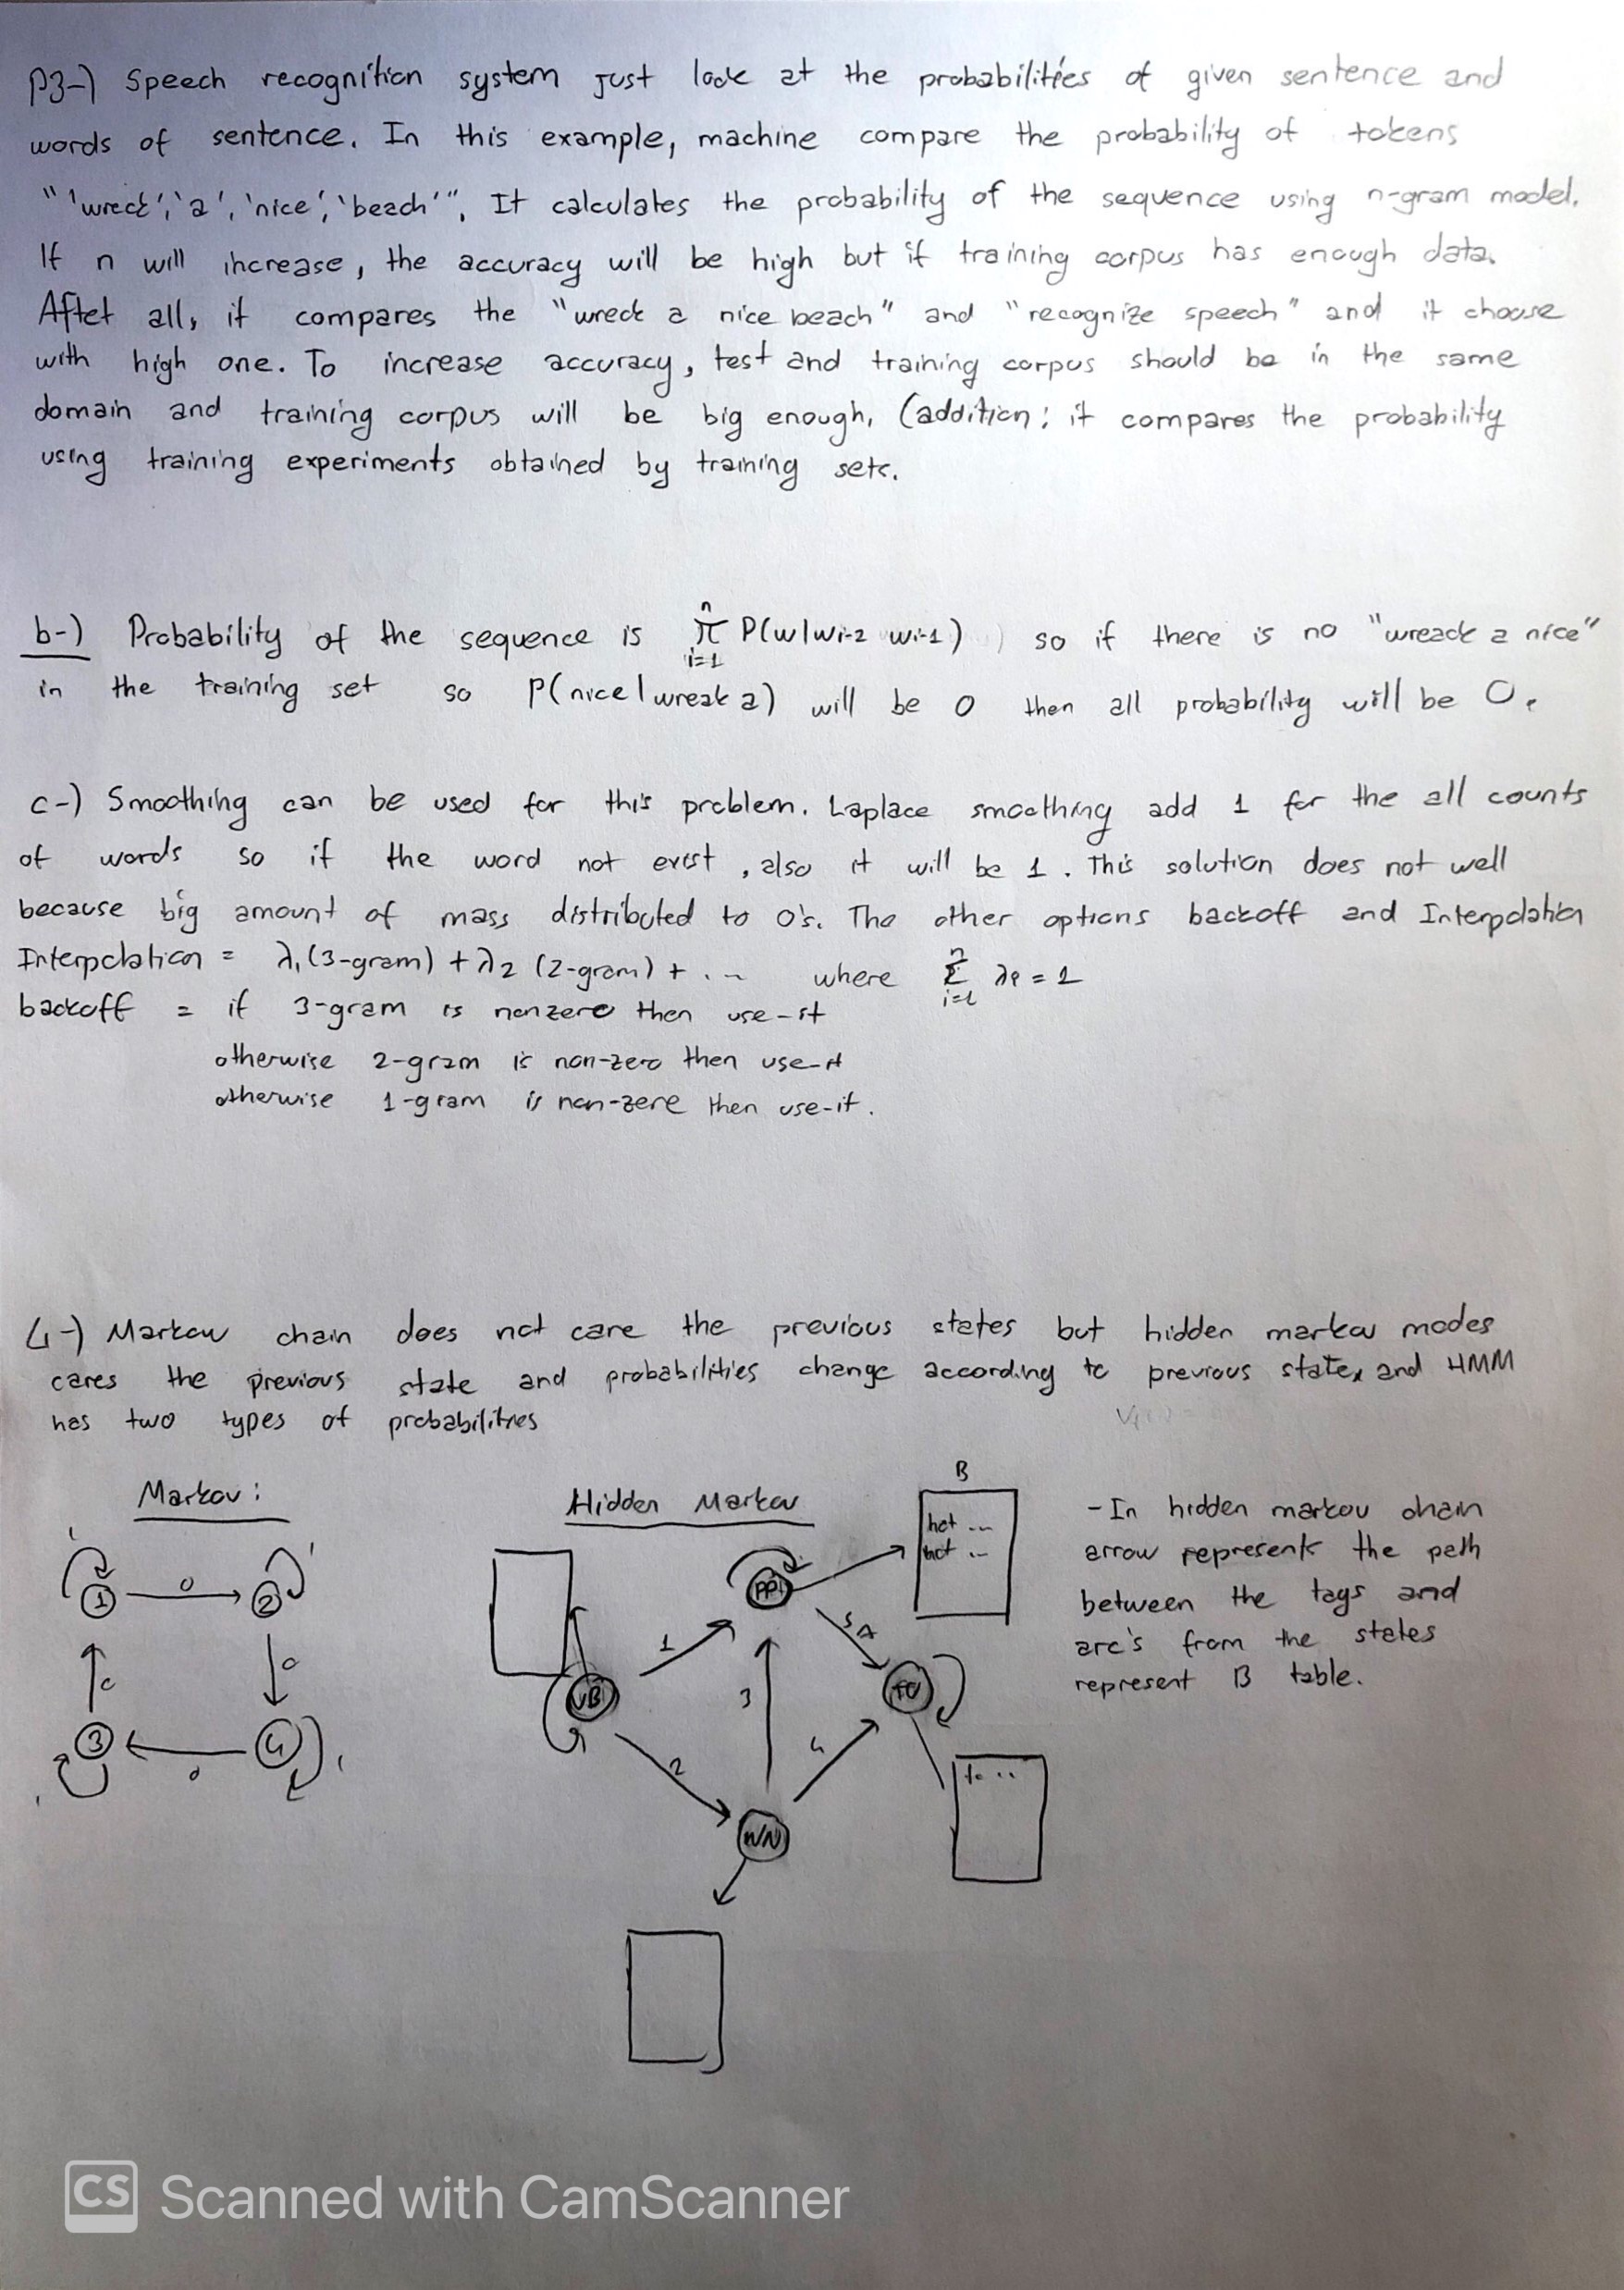 P3-) Speech recognition system just look at the probabilities of given sentence and
words of sentence. In this example, machine compare the probability of tokens
"'wreck', 'a', 'nice', 'beach'". It calculates the probability of the sequence using n-gram model.
If n will increase, the accuracy will be high but if training corpus has enough data.
Aftet all, it compares the "wreck a nice beach" and "recognize speech" and it choose
with high one. To increase accuracy, test and training corpus should be in the same
domain and training corpus will be big enough, (addition: it compares the probability
using training experiments obtained by training sets.
b-) Probability of the sequence is n π i=1 P(w|wi-2 wi-1) so if there is no "wreack a nice"
in the training set so P(nice|wreak a) will be 0 then all probability will be 0.
c-) Smoothing can be used for this problem. Laplace smoothing add 1 for the all counts
of words so if the word not exist, also it will be 1. This solution does not well
because big amount of mass distributed to 0's. The other options backoff and Interpolation
Interpolation = λ1(3-gram) + λ2 (2-gram) + ... where n Σ i=1 λi = 1
backoff = if 3-gram is nonzero then use-it
otherwise 2-gram is non-zero then use-it
otherwise 1-gram is non-zere then use-it.
4-) Markov chain does not care the previous states but hidden markov modes
cares the previous state and probabilities change according to previous state, and HMM
has two types of probabilities
Markov:
1 0 2
0 0
3 0 4
Hidden Markov
B
hot ...
hot ...
PP
1
VB
3
TO
2
4
NN
to ..
- In hidden markov chain
arrow represents the path
between the tags and
arc's from the states
represent B table.
CS Scanned with CamScanner